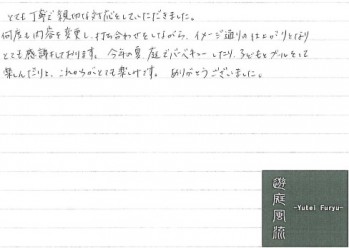 とても丁寧で親切な対応をしていただきました。
何度も内容を変更し、打ち合わせをしながら、イメージ通りの仕上がりとなり
とても感謝しております。今年の夏、庭でバーベキューしたり、子どもとプールをして
楽しんだりと、これからがとても楽しみです。ありがとうございました。
遊庭風流
-Yutei Furyu-